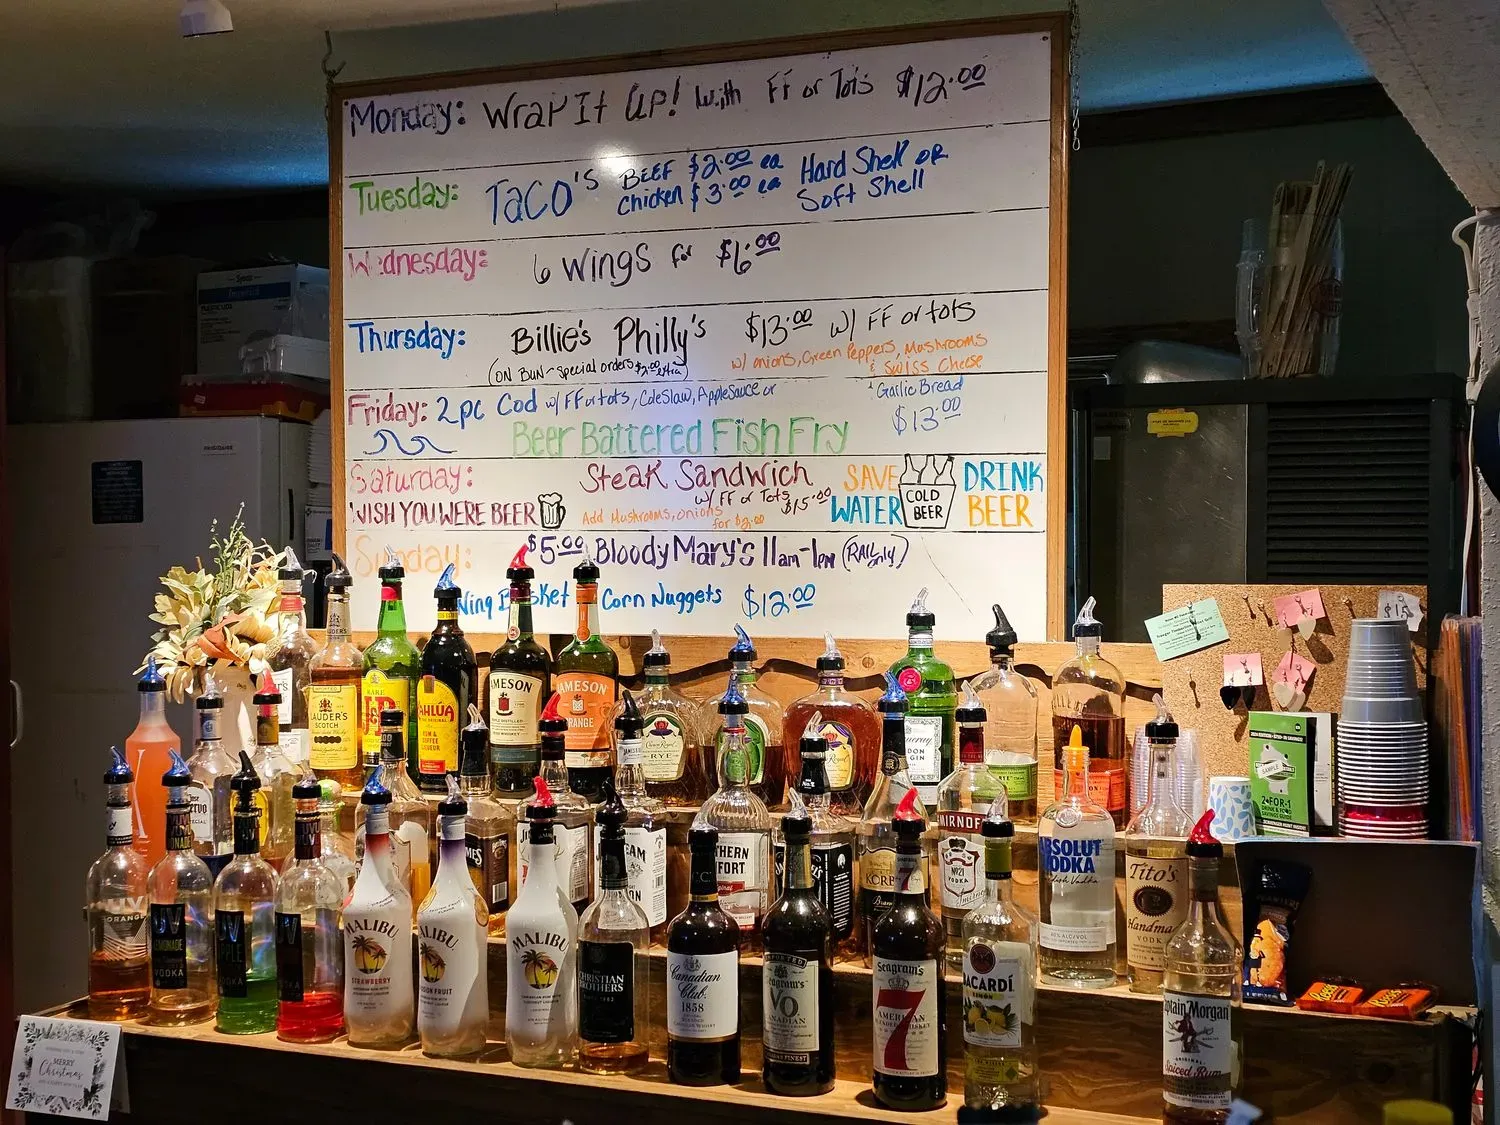 Monday: Wrap It Up! with FF or Tots $12.00
Tuesday: Taco's BEEF $2.00 ea Hard Shell OR
Chicken $3.00 ea Soft Shell
Wednesday: 6 Wings for $6.00
Thursday: Billie's Philly's $13.00 w/ FF or tots
(ON BUN - special orders $2.00 extra) w/ onions, Green Peppers, Mushrooms
& Swiss Cheese
Friday: 2pc Cod w/ FF or tots, Coleslaw, Applesauce or Garlic Bread
Beer Battered Fish Fry $13.00
Saturday: Steak Sandwich
w/ FF or Tots $15.00
WISH YOU WERE BEER
Add Mushrooms, onions
for $2.00
SAVE WATER
COLD BEER
DRINK BEER
Sunday: $5.00 Bloody Mary's 11am-1pm (RAIL only)
Wing Basket Corn Nuggets $12.00
FRIGIDAIRE
$15
LAUDER'S
SCOTCH
RARE
J&B
KAHLÚA
RUM & COFFEE
LIQUEUR
JAMESON
JAMESON
ORANGE
Crown Royal
RYE
SMIRNOFF
No21
VODKA
ABSOLUT
VODKA
Tito's
Handmade
VODKA
SAMPLE
2-FOR-1
UV
ORANGE
UV
LEMONADE
VODKA
UV
APPLE
VODKA
UV
MALIBU
STRAWBERRY
MALIBU
MALIBU
CHRISTIAN
BROTHERS
SOUTHERN
COMFORT
KORBEL
Canadian
Club
1858
IMPORTED
Seagram's
VO
CANADIAN
CANADA'S FINEST
Seagram's
7
AMERICAN
BLENDED WHISKEY
BACARDÍ
LIMÓN
Captain Morgan
ORIGINAL
Spiced Rum
PLANTERS
Reese's
Reese's
MERRY
Christmas
AND A HAPPY NEW YEAR